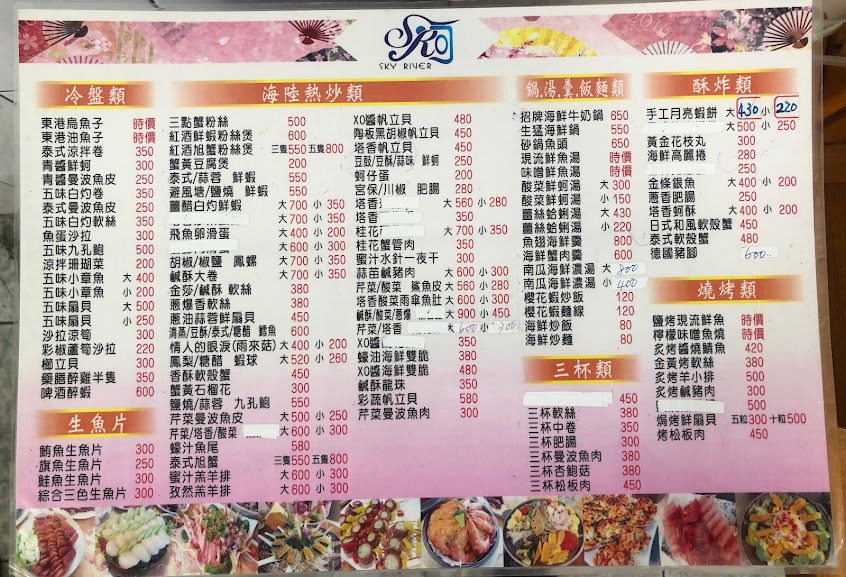 SKY RIVER
2016
冷盤類
東港烏魚子 時價
東港油魚子 時價
泰式涼拌卷 350
青醬鮮蚵 300
青醬曼波魚皮 250
五味白灼卷 350
泰式曼波魚皮 250
五味白灼軟絲 350
魚蛋沙拉 300
五味九孔鮑 500
涼拌珊瑚菜 200
五味小章魚 大 400
五味小章魚 小 200
五味扇貝 大 500
五味扇貝 小 250
沙拉涼筍 300
彩椒蘆筍沙拉 220
櫛立貝 300
藥膳醉雞半隻 350
啤酒醉蝦 600
生魚片
鮪魚生魚片 300
旗魚生魚片 250
鮭魚生魚片 300
綜合三色生魚片 300
海陸熱炒類
三點蟹粉絲 500
紅酒鮮蝦粉絲煲 600
紅酒旭蟹粉絲煲 三隻550 五隻800
蟹黃豆腐煲 200
泰式/蒜蓉 鮮蝦 550
避風塘/鹽燒 鮮蝦 550
薑醋白灼鮮蝦 大700 小 350
大700 小 350
飛魚卵滑蛋 大400 小 200
大600 小 300
胡椒/椒鹽 鳳螺 大700 小 350
鹹酥大卷 大700 小 350
金莎/鹹酥 軟絲 380
蔥爆香軟絲 380
蔥油蒜蓉鮮扇貝 450
清蒸/豆酥/泰式/糖醋 鱈魚 600
情人的眼淚(雨來菇) 大400 小 200
鳳梨/糖醋 蝦球 大520 小 260
香酥軟殼蟹 450
蟹黃石榴花 300
鹽燒/蒜蓉 九孔鮑 550
芹菜曼波魚皮 大500 小 250
芹菜/塔香/酸菜 大600 小 300
蠔汁魚尾 580
泰式旭蟹 三隻550 五隻800
蜜汁羔羊排 大600 小 300
孜然羔羊排 大600 小 300
XO醬帆立貝 480
陶板黑胡椒帆立貝 450
塔香帆立貝 450
豆鼓/豆酥/蒜味 鮮蚵 350
蚵仔蛋 200
宮保/川椒 肥腸 300
塔香 大560 小 280
塔香 350
桂花 大700 小 350
桂花蟹管肉 350
蜜汁水針一夜干 300
蒜苗鹹豬肉 大600 小 300
芹菜/酸菜 鯊魚皮 大560 小 280
塔香酸菜雨傘魚肚 大600 小 300
鹹酥/酸菜/蔥爆 大900 小 450
芹菜/塔香 大600 小 300
XO醬 350
蠔油海鮮雙脆 380
XO醬海鮮雙脆 480
鹹酥龍珠 350
彩蔬帆立貝 580
芹菜曼波魚肉 300
鍋.湯.羹.飯麵類
招牌海鮮牛奶鍋 650
生猛海鮮鍋 550
砂鍋魚頭 650
現流鮮魚湯 時價
味噌鮮魚湯 時價
酸菜鮮蚵湯 大 300
酸菜鮮蚵湯 小 150
薑絲蛤蜊湯 大 430
薑絲蛤蜊湯 小 220
魚翅海鮮羹 800
海鮮蟹肉羹 600
南瓜海鮮濃湯 大 800
南瓜海鮮濃湯 小 400
櫻花蝦炒飯 120
櫻花蝦麵線 120
海鮮炒飯 80
海鮮炒麵 80
三杯類
450
三杯軟絲 380
三杯中卷 350
三杯肥腸 300
三杯曼波魚肉 380
三杯杏鮑菇 380
三杯松板肉 450
酥炸類
手工月亮蝦餅 大430 小 220
大500 小 250
黃金花枝丸 300
海鮮高麗捲 280
250
金條銀魚 大400 小 200
蔥香肥腸 250
塔香蚵酥 大400 小 200
日式和風軟殼蟹 450
泰式軟殼蟹 480
德國豬腳 600
燒烤類
鹽烤現流鮮魚 時價
檸檬味噌魚燒 時價
炙烤醬燒鯖魚 420
金黃烤軟絲 380
炙烤羊小排 500
炙烤鹹豬肉 300
350
焗烤鮮扇貝 五粒300 十粒500
烤松板肉 450